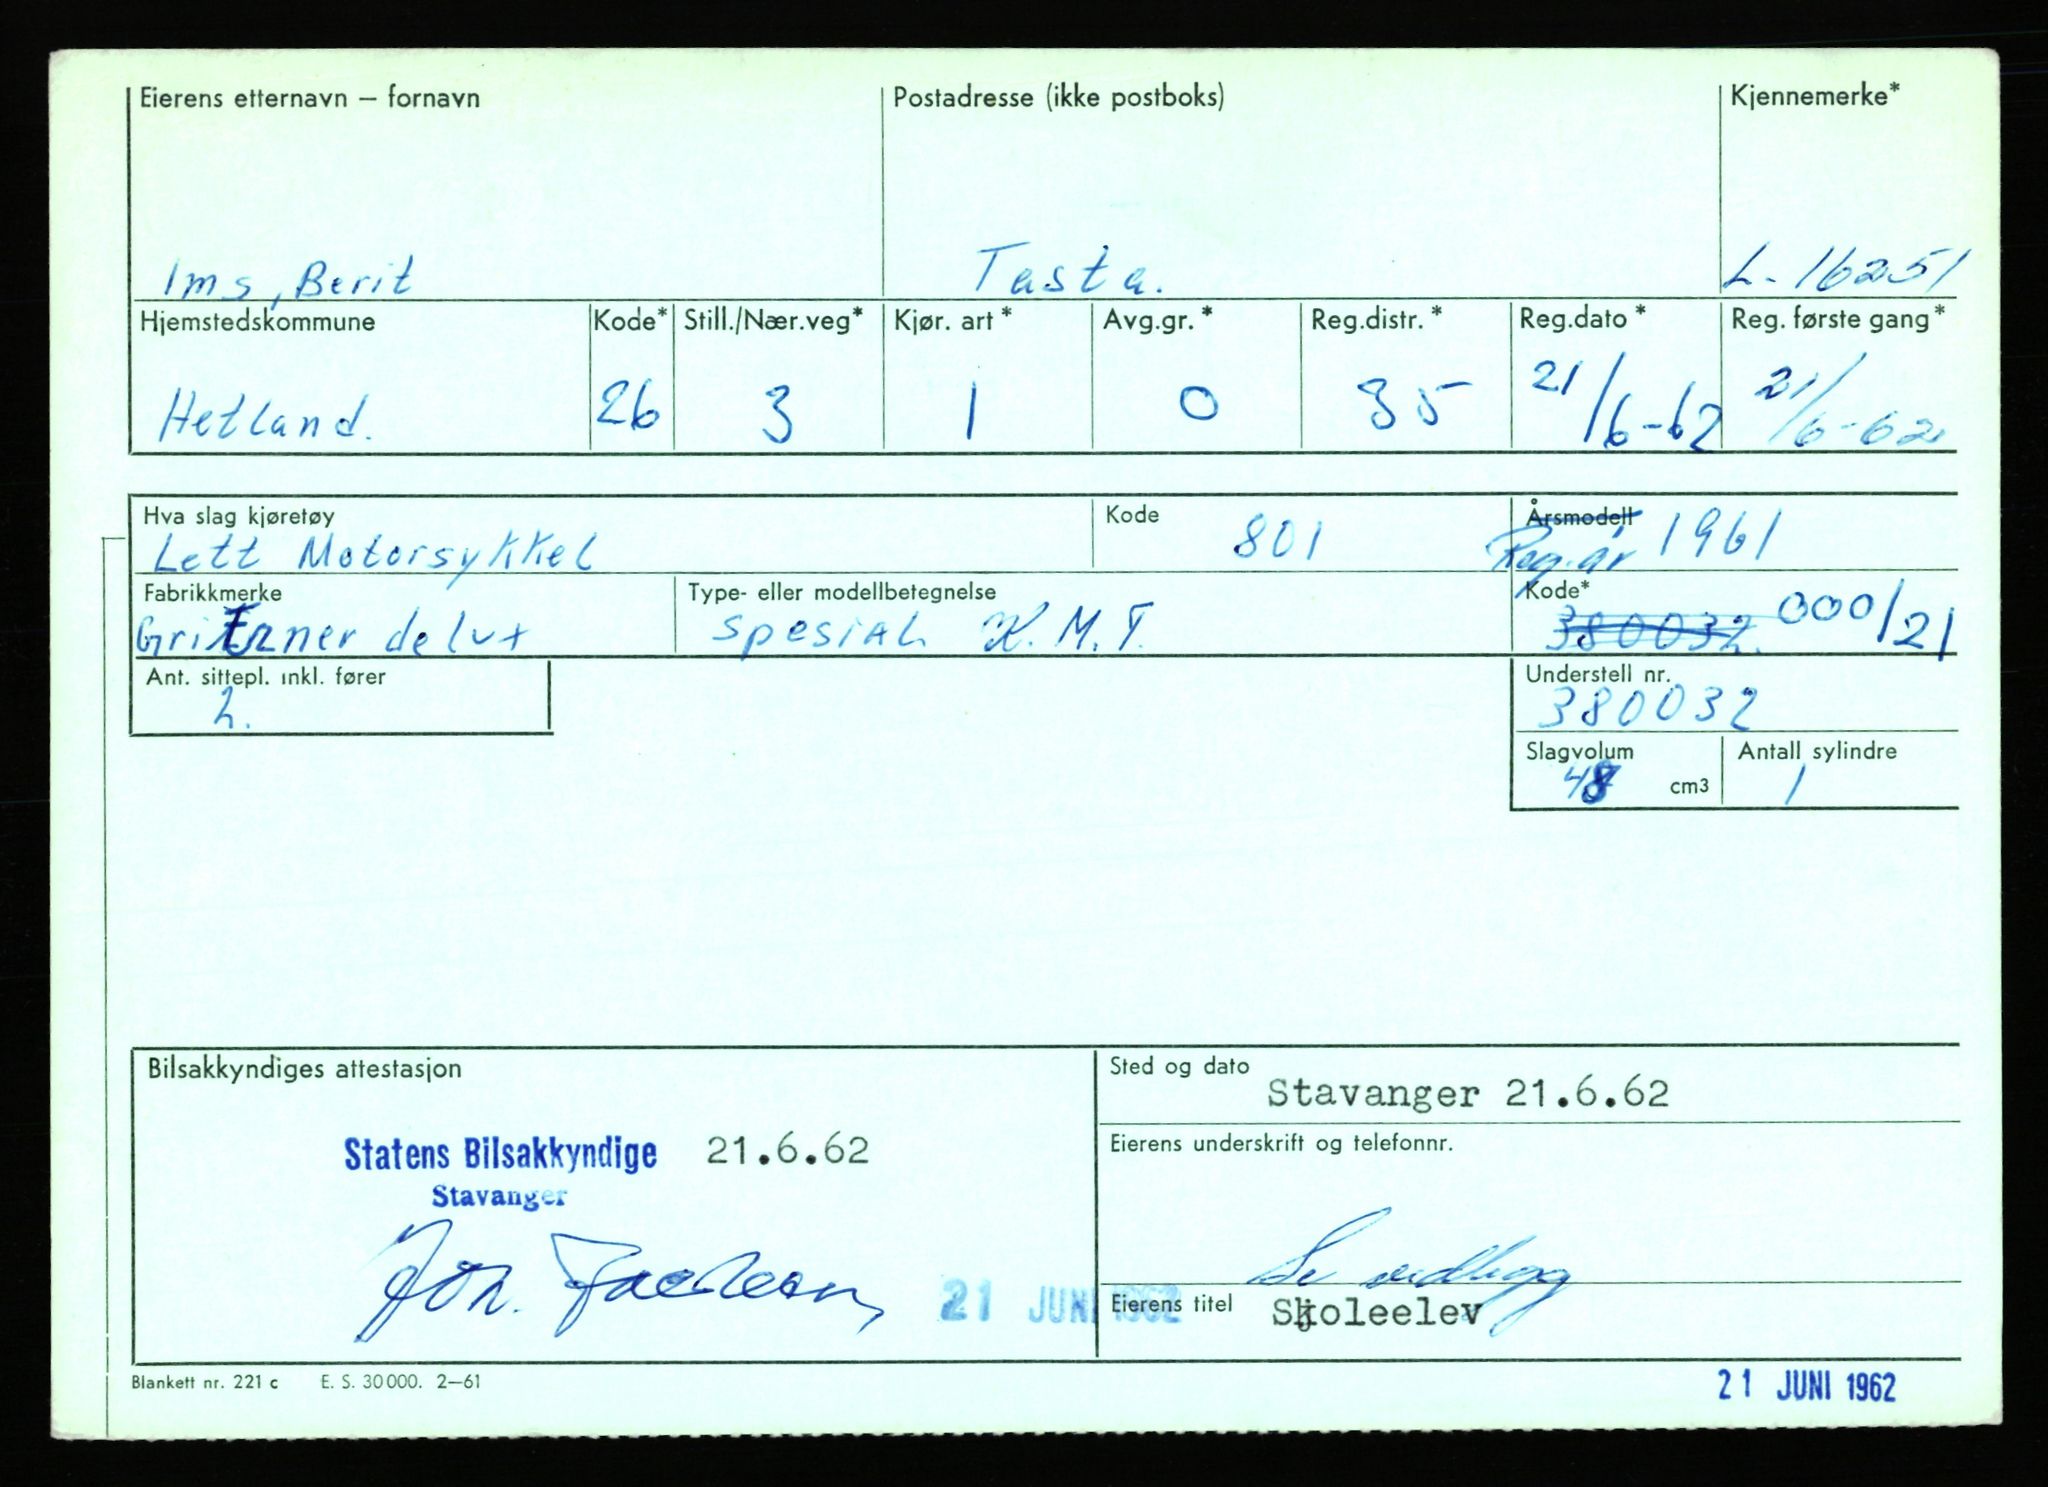 Eierens etternavn – fornavn Postadresse (ikke postboks) Kjennemerke*
Ims, Berit Tasta. L-16251
Hjemstedskommune Kode* Still./Nær.veg* Kjør. art* Avg.gr.* Reg.distr.* Reg.dato* Reg. første gang*
Hetland. 26 3 1 0 35 21/6-62 21/6-62
Hva slag kjøretøy Kode Årsmodell
Lett Motorsykkel 801 Reg.år 1961
Fabrikkmerke Type- eller modellbetegnelse Kode*
Gritzner delux spesial K.M.T. 380032. 000/21
Ant. sittepl. inkl. fører Understell nr.
2. 380032
Slagvolum Antall sylindre
48 cm3 1
Bilsakkyndiges attestasjon Sted og dato
Stavanger 21.6.62
Statens Bilsakkyndige 21.6.62 Eierens underskrift og telefonnr.
Stavanger
Se vedlegg
21 JUNI 1962 Eierens titel Skoleelev
Blankett nr. 221 c E. S. 30000. 2–61 21 JUNI 1962